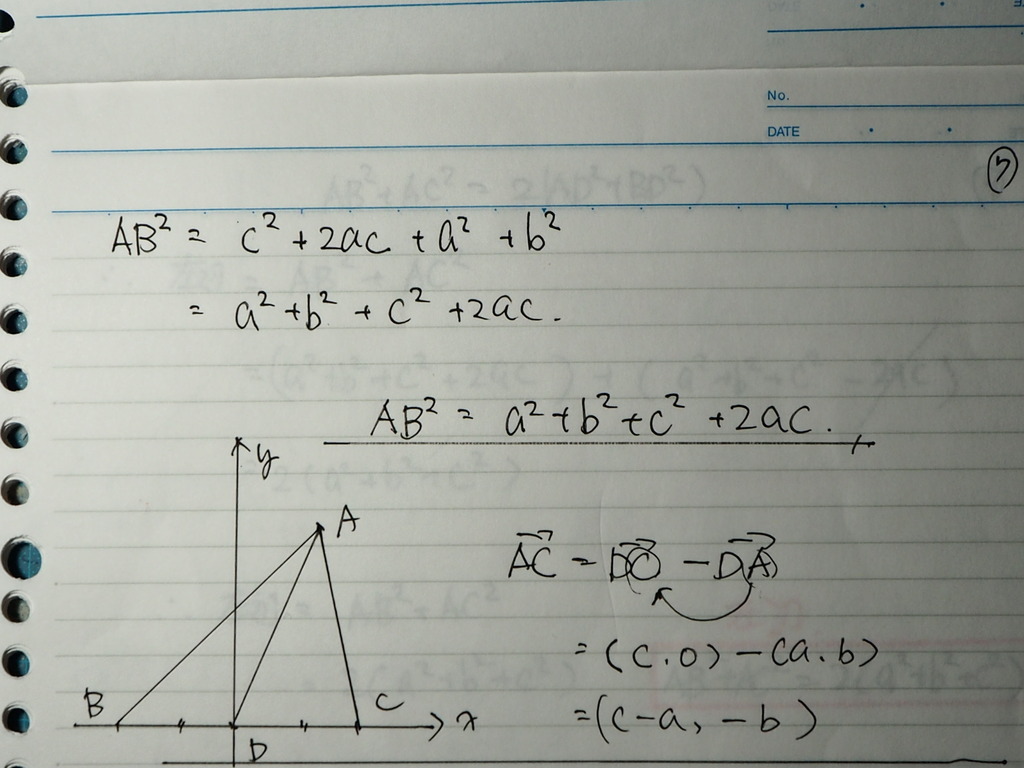 No.
DATE
⑦
AB² = c² + 2ac + a² + b²
= a² + b² + c² + 2ac.
AB² = a² + b² + c² + 2ac.
y
A
B
C
x
D
AC→ = DC→ − DA→
= (c.0) − (a.b)
= (c−a, −b)